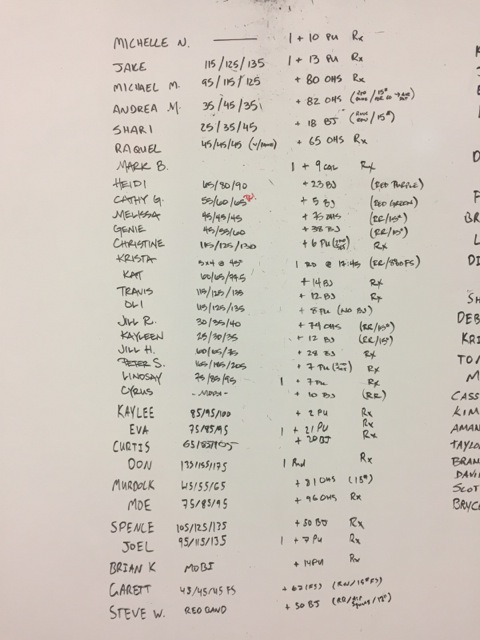 MICHELLE N. —— 1 + 10 PU Rx
JAKE 115/125/135 1 + 13 PU Rx
MICHAEL M. 95/115/125 + 80 OHS Rx
ANDREA M. 35/45/35 + 82 OHS
SHARI 25/35/45 + 18 BJ
RAQUEL 45/45/45 + 65 OHS Rx
MARK B. 1 + 9 CAL Rx
HEIDI 65/80/90 + 23 BJ (RED PURPLE)
CATHY G. 55/60/65 + 5 BJ (RED GREEN)
MELISSA 45/45/45 + 75 OHS (RR/15#)
GENIE 45/55/60 + 38 BJ (RR/15#)
CHRISTINE 115/125/130 + 6 PU Rx
KRISTA 5x4 @ 45# 1 RD @ (RR/
KAT + 14 BJ Rx
TRAVIS 115/125/135 + 12 BJ Rx
OLI 115/125/135 + 8 PU (NO BJ)
JILL R. 30/35/40 + 79 OHS (RR/15#)
KAYLEEN 25/30/35 + 12 BJ (RR/15#)
JILL H. 60/65/75 + 28 BJ Rx
PETER S. 165/185/205 + 7 PU Rx
LINDSAY 75/85/95 1 + 7 PU Rx
CYRUS + 10 BJ (RR)
KAYLEE 85/95/100 + 2 PU Rx
EVA 75/85/95 1 + 21 PU Rx
CURTIS 65/85/105 + 20 BJ Rx
DON 135/155/175 1 Rnd Rx
MURDOCK 45/55/65 + 81 OHS (15#)
MOE 75/85/95 + 96 OHS Rx
SPENCE 105/125/135 + 50 BJ Rx
JOEL 95/115/135 1 + 7 PU Rx
BRIAN K MOBI + 14 PU Rx
GARETT 45/45/45 FS + 62 (FS)
STEVE W. RED BAND + 50 BJ
DEB
KRI
TO
M
CASS
KIM
AMAN
TAYLO
BRAN
DAVI
SCOT
BRYC